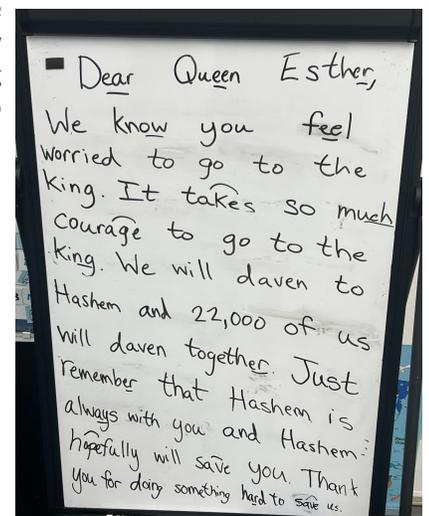 Dear Queen Esther,
We know you feel
worried to go to the
King. It takes so much
courage to go to the
King. We will daven to
Hashem and 22,000 of us
will daven together. Just
remember that Hashem is
always with you and Hashem
hopefully will save you. Thank
you for doing something hard to save us.